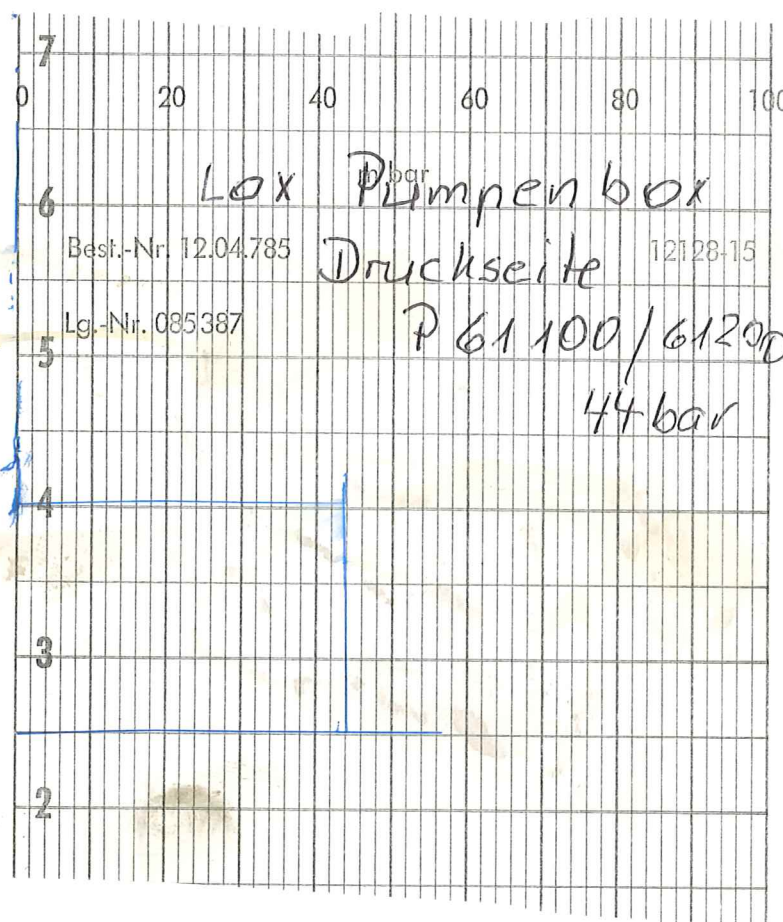 7
0 20 40 60 80 100
Lox Pumpenbox
mbar
6
Best.-Nr. 12.04.785 Druckseite 12128-15
Lg.-Nr. 085387 P 61100/61200
5
44 bar
4
3
2